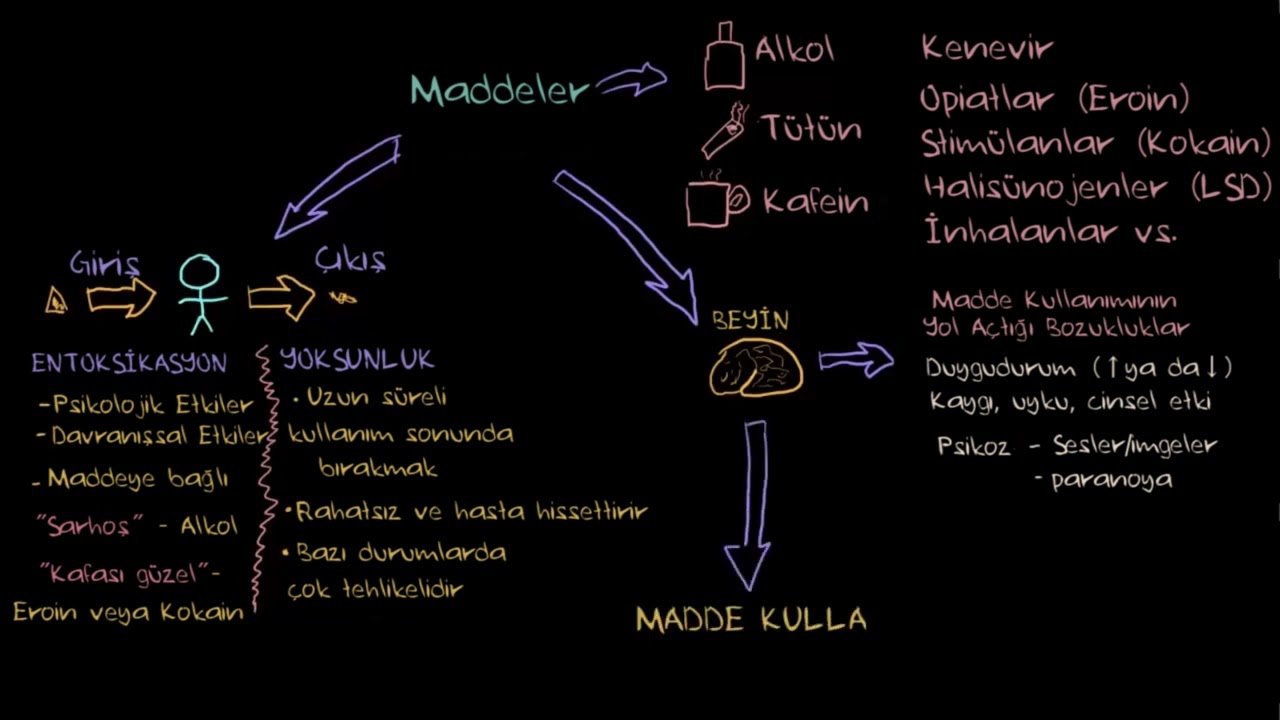 Maddeler
Alkol
Tütün
Kafein
Kenevir
Opiatlar (Eroin)
Stimülanlar (Kokain)
Halisünojenler (LSD)
İnhalanlar vs.
Giriş
Çıkış
ENTOKSİKASYON
-Psikolojik Etkiler
-Davranışsal Etkiler
- Maddeye bağlı
"Sarhoş" - Alkol
"Kafası güzel"-
Eroin veya Kokain
YOKSUNLUK
• Uzun süreli
kullanım sonunda
bırakmak
•Rahatsız ve hasta hissettirir
• Bazı durumlarda
çok tehlikelidir
BEYİN
Madde Kullanımının
Yol Açtığı Bozukluklar
Duygudurum (↑ya da↓)
Kaygı, uyku, cinsel etki
Psikoz - Sesler/imgeler
- paranoya
MADDE KULLA